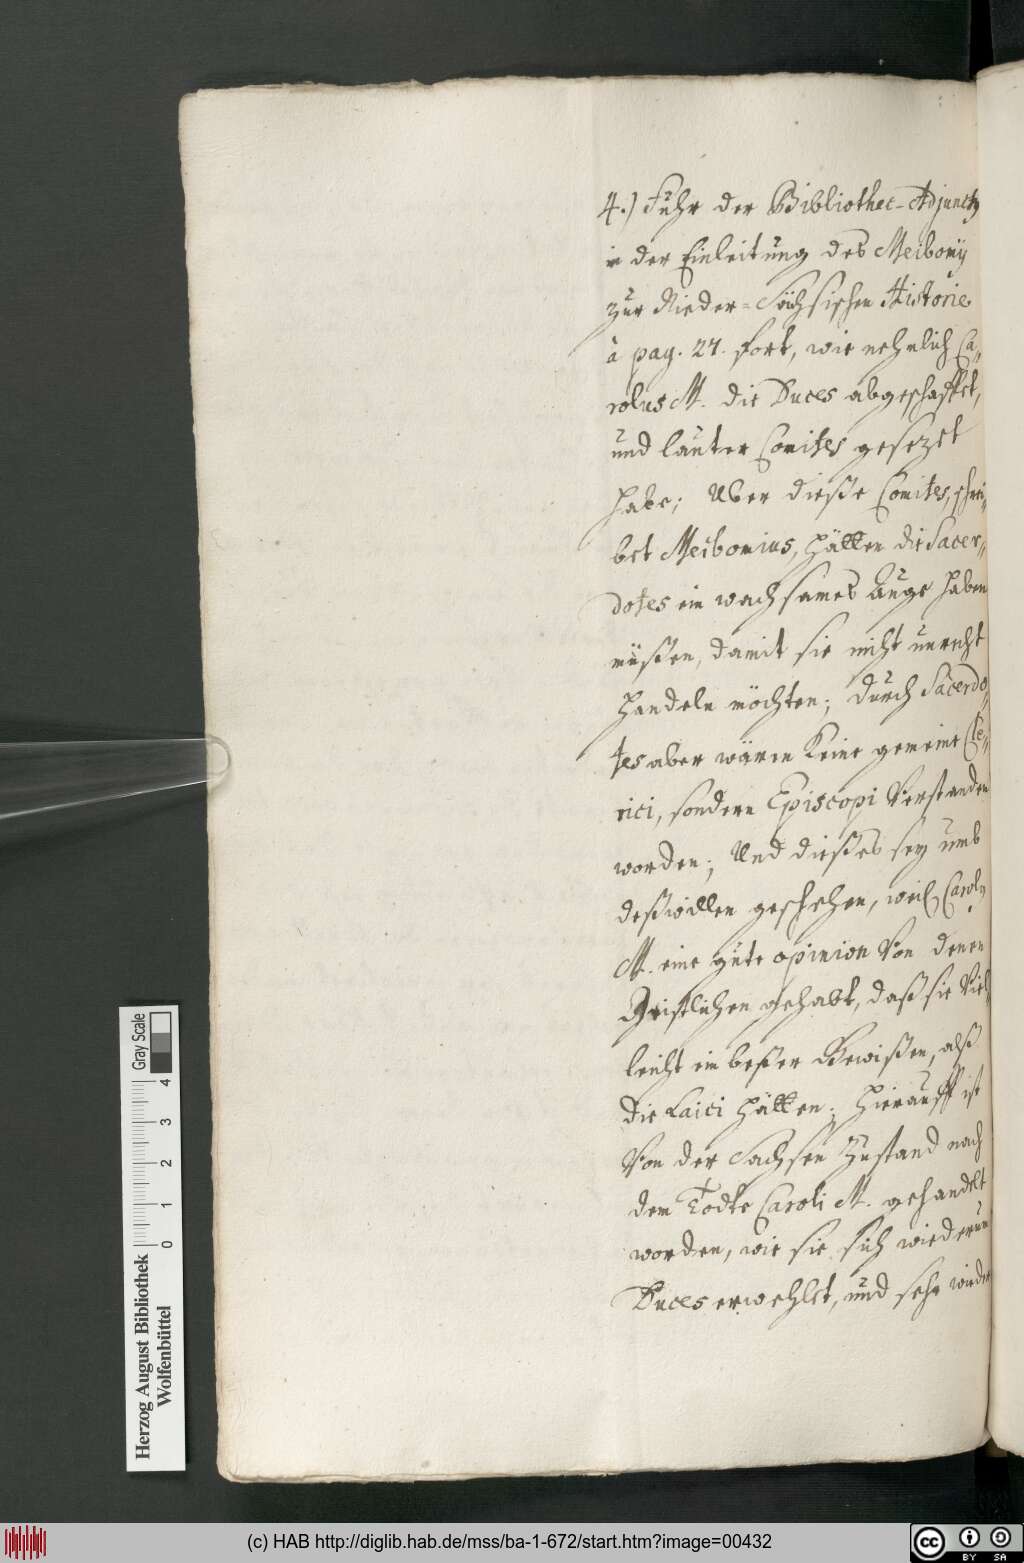 4.) Fuhr der Bibliothec-Adjunctus
in der Einleitung des Meibomij
zur Nieder=Sächsischen Historie
à pag. 27. fort, wie nehmlich Ca„
rolus M. die Duces abgeschaffet,
und lauter Comites gesezet
habe; Uber dieße Comites, schrei„
bet Meibomius, hätten die Sacer„
dotes ein wachsames Auge haben
müßen, damit sie nicht unrecht
handeln möchten; durch Sacerdo„
tes aber wären keine gemeine Cle„
rici, sondern Episcopi verstanden
worden; Und dießes sey umb
deßwillen geschehen, weil Carolus
M. eine gute opinion von denen
Geistlichen gehabt, daß sie viel„
leicht ein beßer Gewißen, alß
die Laici hätten; Hierauff ist
von der Sachsen Zustand nach
dem Todte Caroli M. gehandelt
worden, wie sie sich wiederum
Duces erwehlet, und sehr wieder
Gray Scale
0 1 2 3 4
Herzog August Bibliothek
Wolfenbüttel
(c) HAB http://diglib.hab.de/mss/ba-1-672/start.htm?image=00432
cc BY SA